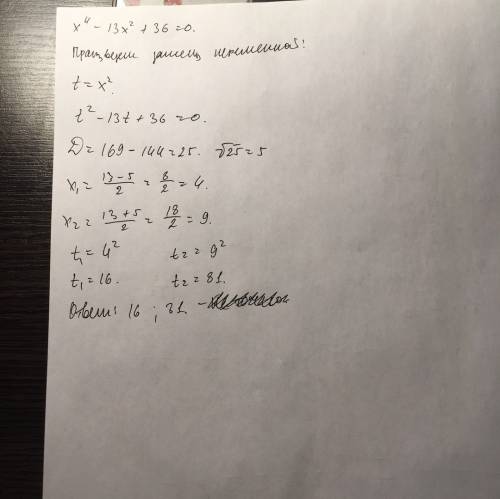 x⁴ - 13x² + 36 = 0.
Произведем замену переменной:
t = x².
t² - 13t + 36 = 0.
D = 169 - 144 = 25. √25 = 5
x₁ = (13-5)/2 = 8/2 = 4.
x₂ = (13+5)/2 = 18/2 = 9.
t₁ = 4² t₂ = 9²
t₁ = 16. t₂ = 81.
Ответ: 16 ; 81.